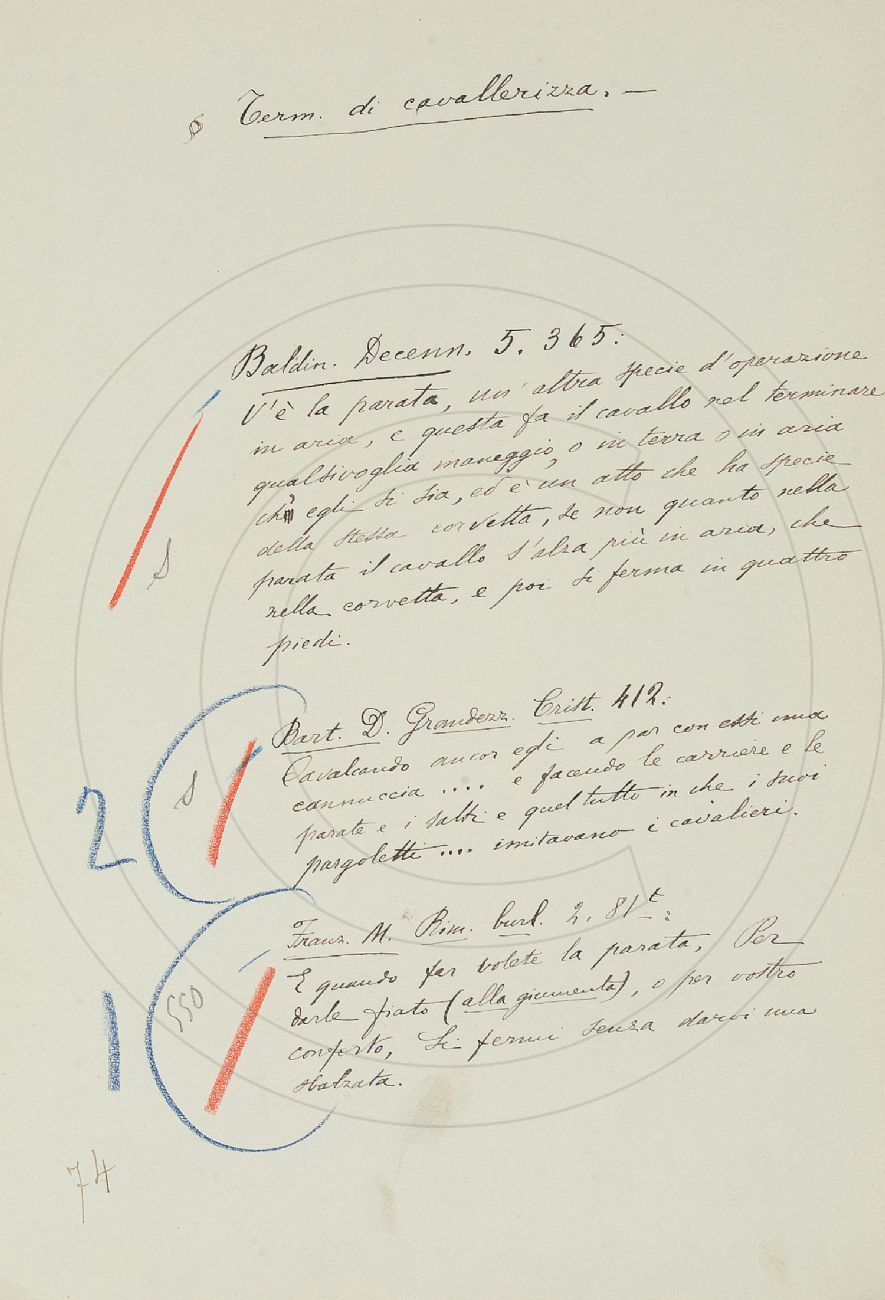 § Term. di cavallerizza. —
Baldin. Decenn. 5. 365:
V'è la parata, un' altra specie d'operazione
in aria, e questa fa il cavallo nel terminare
qualsivoglia maneggio, o in terra o in aria
ch' egli si sia, ed è un atto che ha specie
della stessa corvetta, se non quanto nella
parata il cavallo s'alza più in aria, che
nella corvetta, e poi si ferma in quattro
piedi.
S
Bart. D. Grandezz. Crist. 412:
Cavalcando ancor egli a par con essi una
cannuccia .... e facendo le carriere e le
parate e i salti e quel tutto in che i suoi
pargoletti .... imitavano i cavalieri.
S
2
Franz. M. Rim. burl. 2. 81t:
E quando far volete la parata, Per
darle fiato (alla giumenta), o per vostro
conforto, Si fermi senza darvi una
sbalzata.
550
1
74